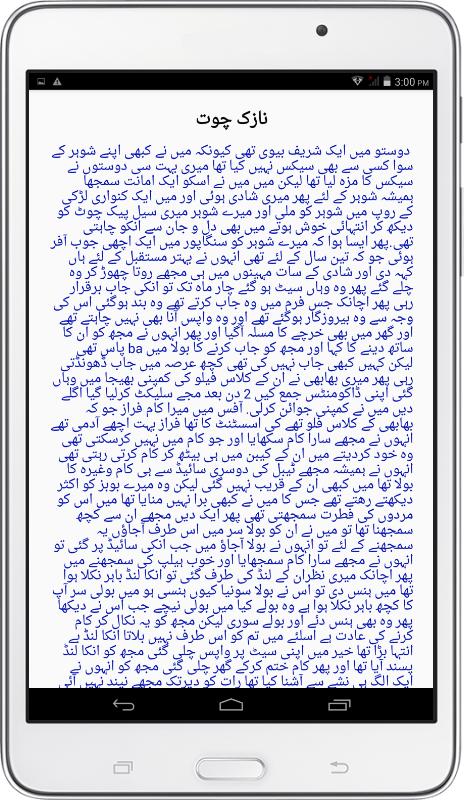 3:00 PM
نازک چوت
دوستو میں ایک شریف بیوی تھی کیونکہ میں نے کبھی اپنے شوہر کے
سوا کسی سے بھی سیکس نہیں کیا تھا میری بہت سی دوستوں نے
سیکس کا مزہ لیا تھا لیکن میں میں نے اسکو ایک امانت سمجھا
ہمیشہ شوہر کے لئے پھر میری شادی ہوئی اور میں ایک کنواری لڑکی
کے روپ میں شوہر کو ملی اور میرے شوہر میری سیل پیک چوٹ کو
دیکھ کر انتہائی خوش ہوتے میں بھی دل و جان سے انکو چاہتی
تھی.پھر ایسا ہوا کہ میرے شوہر کو سنگاپور میں ایک اچھی جوب آفر
ہوئی جو کہ تین سال کے لئے تھی انہوں نے بہتر مستقبل کے لئے ہاں
کہہ دی اور شادی کے سات مہینوں میں ہی مجھے روتا چھوڑ کر وہ
چلے گئے پھر وہ وہاں سیٹ ہو گئے چار ماہ تک تو انکی جاب برقرار
رہی پھر اچانک جس فرم میں وہ جاب کرتے تھے وہ بند ہوگئی اس کی
وجہ سے وہ بیروزگار ہوگئے تھے اور وہ واپس آنا بھی نہیں چاہتے تھے
اور گھر میں بھی خرچے کا مسلہ آگیا اور پھر انہوں نے مجھ کو ان کا
ساتھ دینے کا کہا اور مجھ کو جاب کرنے کا بولا میں ba پاس تھی
لیکن کہیں کبھی جاب نہیں کی تھی کچھ عرصہ میں جاب ڈھونڈتی
رہی پھر میری بھابھی نے ان کے کلاس فیلو کی کمپنی بھیجا میں وہاں
گئی اپنی ڈاکومنٹس جمع کیں 2 دن بعد مجے سلیکٹ کرلیا گیا اگلے
دیں میں نے کمپنی جوائن کرلی. آفس میں میرا کام فراز جو کہ
بھابھی کے کلاس فلو تھے کی اسسٹنٹ کا تھا فراز بہت اچھے آدمی تھے
انہوں نے مجھے سارا کام سکھایا اور جو کام میں نہیں کرسکتی تھی
وہ خود کردیتے میں ان کے کیبن میں ہی بیٹھ کر کام کرتی رہتی تھی
انہوں نے ہمیشہ مجھے ٹیبل کی دوسری سائیڈ سے ہی کام وغیرہ کا
بولا تھا میں کبھی ان کے قریب نہیں گئی لیکن وہ میرے بوبز کو اکثر
دیکھتے رھتے تھے جس کا میں نے کبھی برا نہیں منایا تھا میں اس کو
مردوں کی فطرت سمجھتی تھی پھر ایک دیں مجھے ان سے کچھ
سمجھنا تھا تو میں نے ان کو بولا سر میں اس طرف آجاؤں یہ
سمجھنے کے لئے تو انہوں نے بولا آجاؤ میں جب انکی سائیڈ پر گئی تو
انہوں نے مجھے سارا کام سمجھایا اور خوب ہیلپ کی سمجھنے میں
پھر اچانک میری نظران کے لنڈ کی طرف گئی تو انکا لنڈ باہر نکلا ہوا
تھا میں ہنس دی تو اس نے بولا سونیا کیوں ہنسی ہو میں بولی سر آپ
کا کچھ باہر نکلا ہوا ہے وہ بولے کیا میں بولی نیچے جب اس نے دیکھا
پھر وہ بھی ہنس دئے اور بولے سوری لیکن مجھ کو یہ نکال کر کام
کرنے کی عادت ہے اسلئے میں تم کو اس طرف نہیں بلاتا انکا لنڈ بے
انتہا بڑا تھا خیر میں اپنی سیٹ پر واپس چلی گئی مجھ کو انکا لنڈ
پسند آیا تھا اور پھر کام ختم کرکے گھر چلی گئی مجھ کو انہوں نے
ایک الگ ہی نشے سے آشنا کیا تھا رات کو دیرتک مجھے نیند نہیں آئی